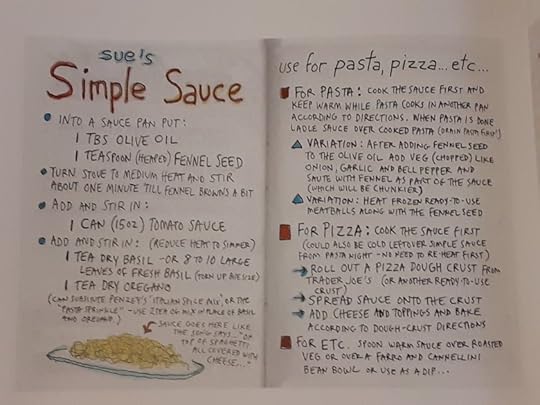 sue's
Simple Sauce
INTO A SAUCE PAN PUT:
1 TBS OLIVE OIL
1 TEASPOON (HEAPED) FENNEL SEED
TURN STOVE TO MEDIUM HEAT AND STIR
ABOUT ONE MINUTE TILL FENNEL BROWNS A BIT
ADD AND STIR IN:
1 CAN (15oz) TOMATO SAUCE
ADD AND STIR IN: (REDUCE HEAT TO SIMMER)
1 TEA DRY BASIL - OR 8 TO 10 LARGE
LEAVES OF FRESH BASIL (TORN UP
1 TEA DRY OREGANO
(CAN SUBSTITUTE PENZEY'S 'ITALIAN SPICE MIX' OR THE
"PASTA SPRINKLE" - USE 2 TEA OF MIX IN PLACE OF BASIL
AND OREGANO.)
SAUCE GOES HERE LIKE
THE SONG SAYS... "ON
TOP OF SPAGHETTI
ALL COVERED WITH
CHEESE..."
use for pasta, pizza... etc...
FOR PASTA: COOK THE SAUCE FIRST AND
KEEP WARM WHILE PASTA COOKS IN ANOTHER PAN
ACCORDING TO DIRECTIONS. WHEN PASTA IS DONE
LADLE SAUCE OVER COOKED PASTA (DRAIN PASTA FIRST!)
VARIATION: AFTER ADDING FENNEL SEED
TO THE OLIVE OIL ADD VEG (CHOPPED) LIKE
ONION, GARLIC AND BELL PEPPER AND
SAUTE WITH FENNEL AS PART OF THE SAUCE
(WHICH WILL BE CHUNKIER)
VARIATION: HEAT FROZEN READY-TO-USE
MEATBALLS ALONG WITH THE FENNEL SEED
FOR PIZZA: COOK THE SAUCE FIRST
(COULD ALSO BE COLD LEFTOVER SIMPLE SAUCE
FROM PASTA NIGHT - NO NEED TO RE-HEAT FIRST)
ROLL OUT A PIZZA DOUGH CRUST FROM
TRADER JOE'S (OR ANOTHER READY-TO-USE
CRUST)
SPREAD SAUCE ONTO THE CRUST
ADD CHEESE AND TOPPINGS AND BAKE
ACCORDING TO DOUGH-CRUST DIRECTIONS
FOR ETC. SPOON WARM SAUCE OVER ROASTED
VEG OR OVER A FARRO AND CANNELLINI
BEAN BOWL OR USE AS A DIP...